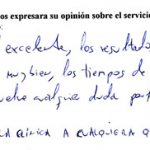 os expresara su opinión sobre el servicio
excelente, los resultado
muy bien, los tiempos de
cualquier duda
LA CLÍNICA A CUALQUIERA Q